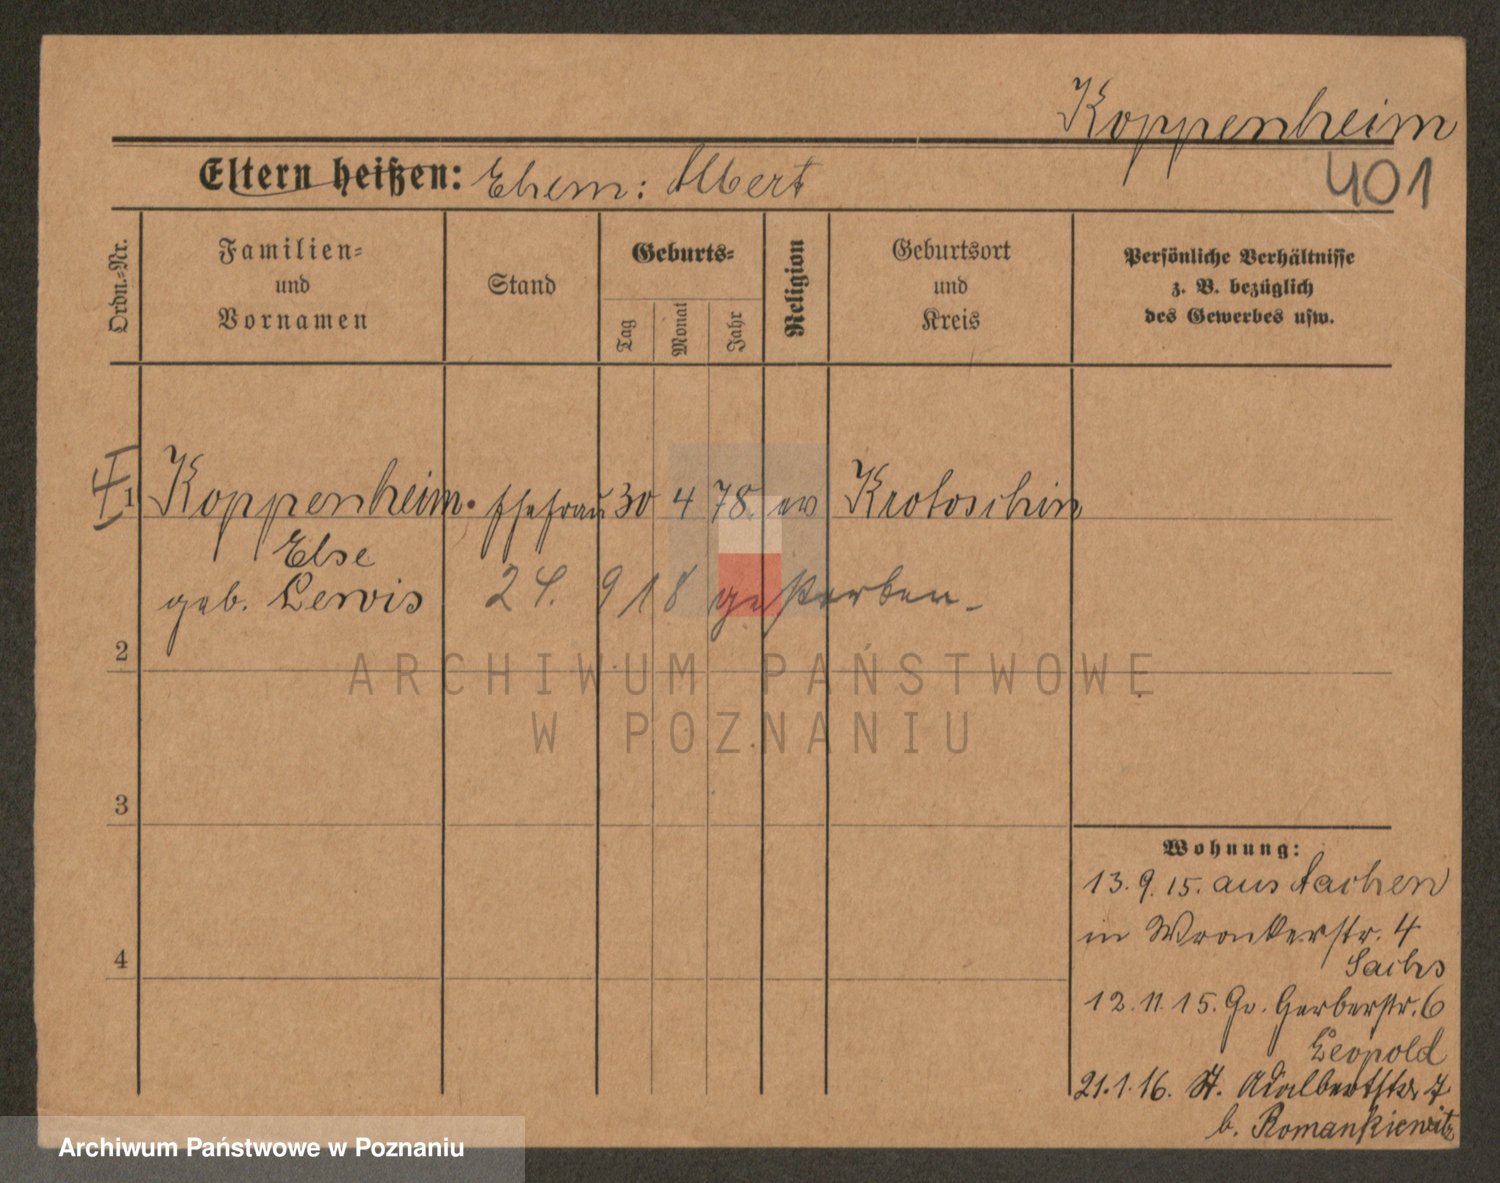 Koppenheim
401
Eltern heißen: Ehem: Albert
Ordn.-Nr.
Familien- und Vornamen
Stand
Geburts-
Tag
Monat
Jahr
Religion
Geburtsort und Kreis
Persönliche Verhältnisse
z. B. bezüglich
des Gewerbes usw.
1 Koppenheim. Ehefrau 30 4 78. ev Krotoschin
Else
geb. Lewis
24. 9 18 gestorben.
2
3
4
ARCHIWUM PAŃSTWOWE
W POZNANIU
Wohnung:
13.9.15. aus Aachen
in Wronkerstr. 4
Sachs
12.11.15. Gr. Gerberstr. 6
Leopold
21.1.16. St. Adalbertstr 7
b. Romankiewitz
Archiwum Państwowe w Poznaniu